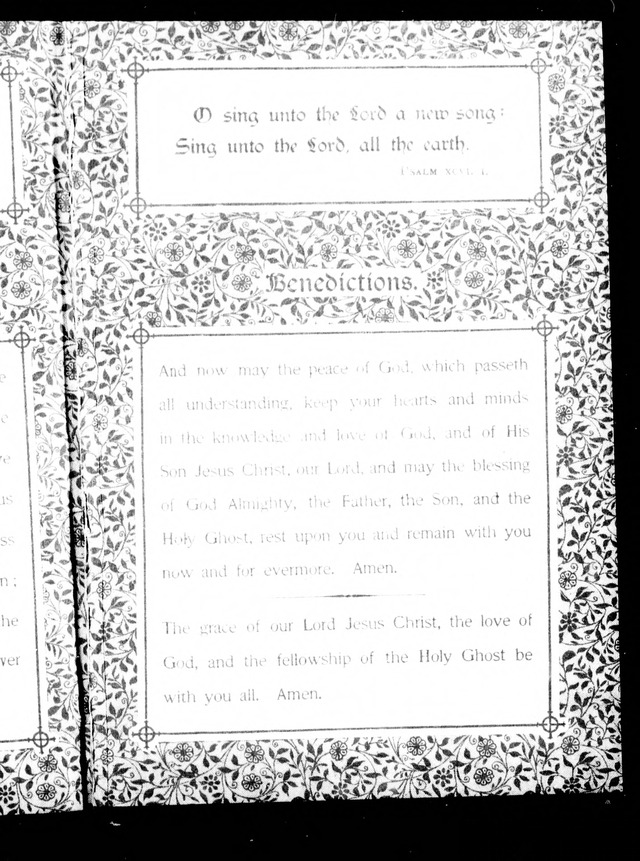 O sing unto the Lord a new song:
Sing unto the Lord, all the earth.
Psalm xcvi. 1.
Benedictions.
And now may the peace of God, which passeth
all understanding, keep your hearts and minds
in the knowledge and love of God, and of His
Son Jesus Christ, our Lord, and may the blessing
of God Almighty, the Father, the Son, and the
Holy Ghost, rest upon you and remain with you
now and for evermore. Amen.
The grace of our Lord Jesus Christ, the love of
God, and the fellowship of the Holy Ghost be
with you all. Amen.